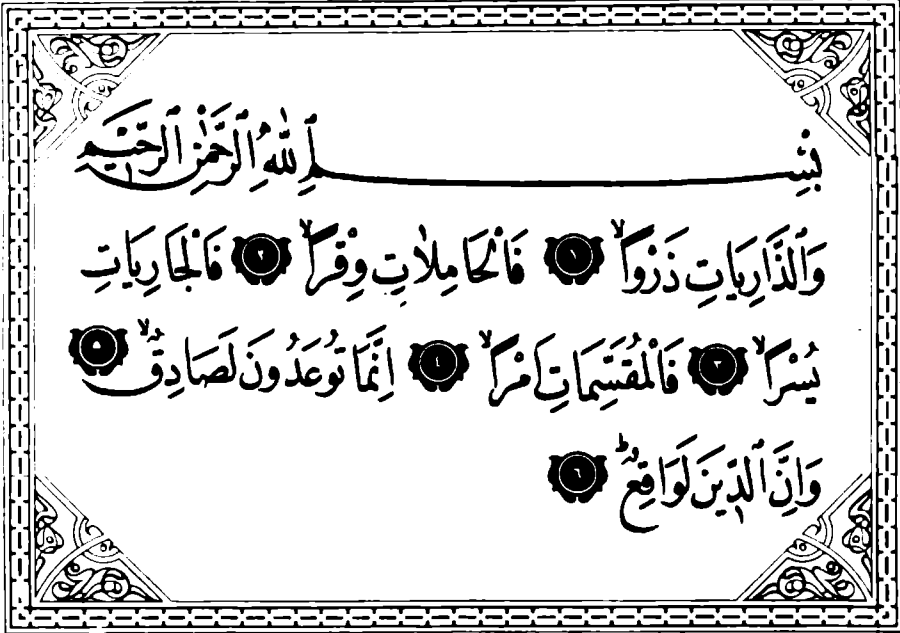 بِسْمِ ٱللّٰهِ ٱلرَّحْمٰنِ ٱلرَّحٖيمِ
وَٱلذَّارِيَاتِ ذَرْوًاۙ ١ فَالْحَامِلَاتِ وِقْرًاۙ ٢ فَالْجَارِيَاتِ
يُسْرًاۙ ٣ فَالْمُقَسِّمَاتِ اَمْرًاۙ ٤ اِنَّمَا تُوعَدُونَ لَصَادِقٌۙ ٥
وَاِنَّ ٱلدّٖينَ لَوَاقِعٌؕ ٦